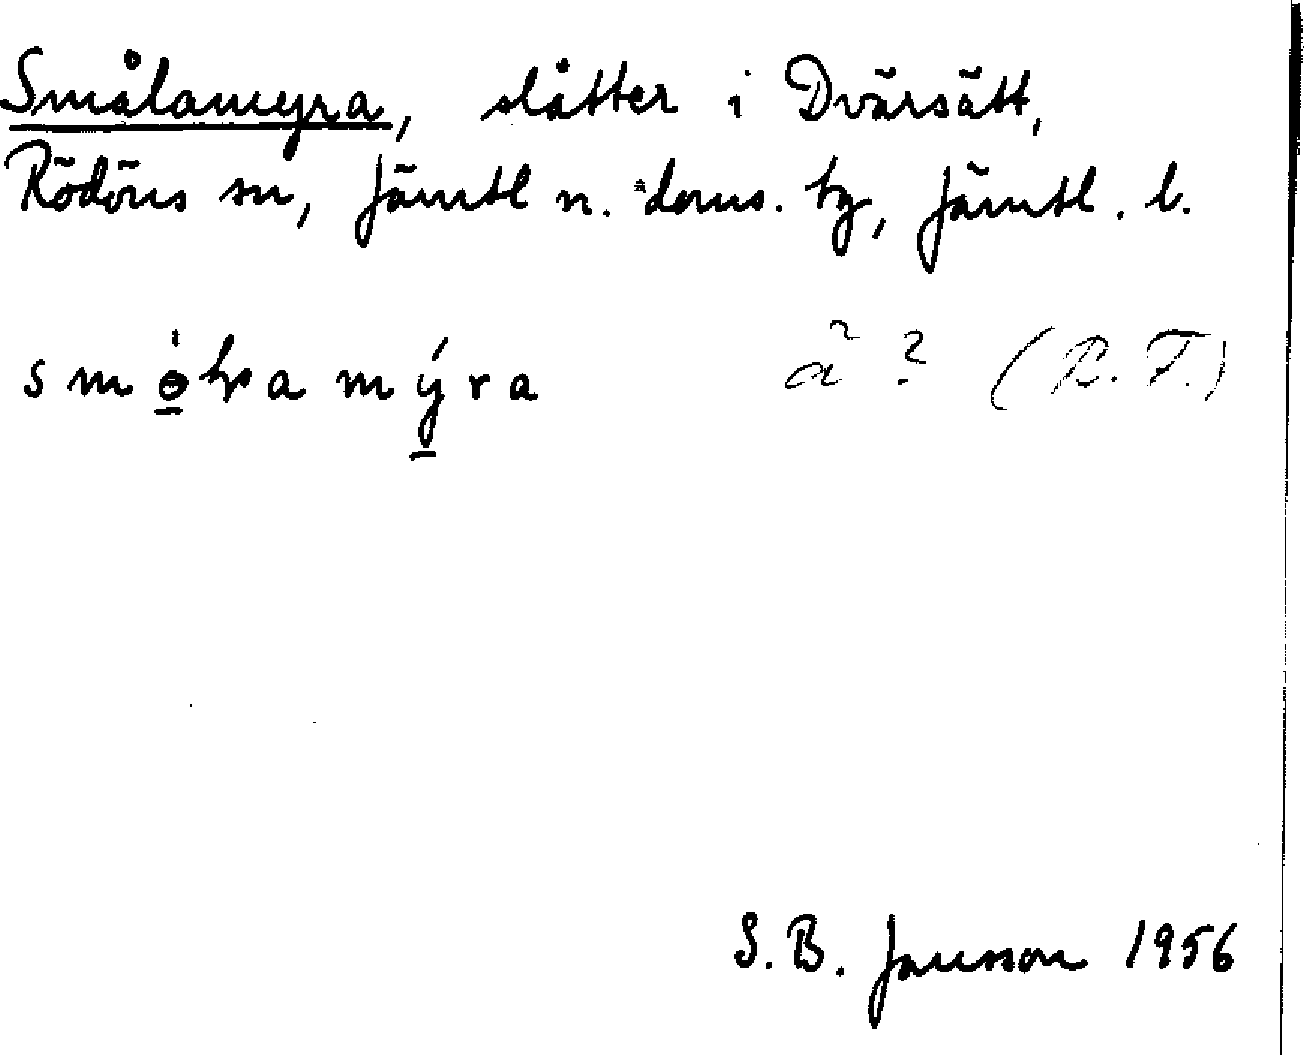 Smålamyra, slåtter i Dvärsätt,
Rödöns sn, Jämtl n. doms. tg, Jämtl. l.
ã ? (R. F.)
S. B. Jansson 1956